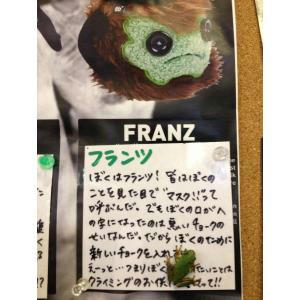 FRANZ
フランツ
ぼくはフランツ！皆はぼくの
ことを見た目で"マスク!!"って
呼ぶんだ。でもぼくの口がへ
の字になったのは悪いチョークの
せいなんだ。だからぼくのために
新しいチョークを入れ
えーっと…つまりぼく たいことは
クライミングのお伝 せて!!